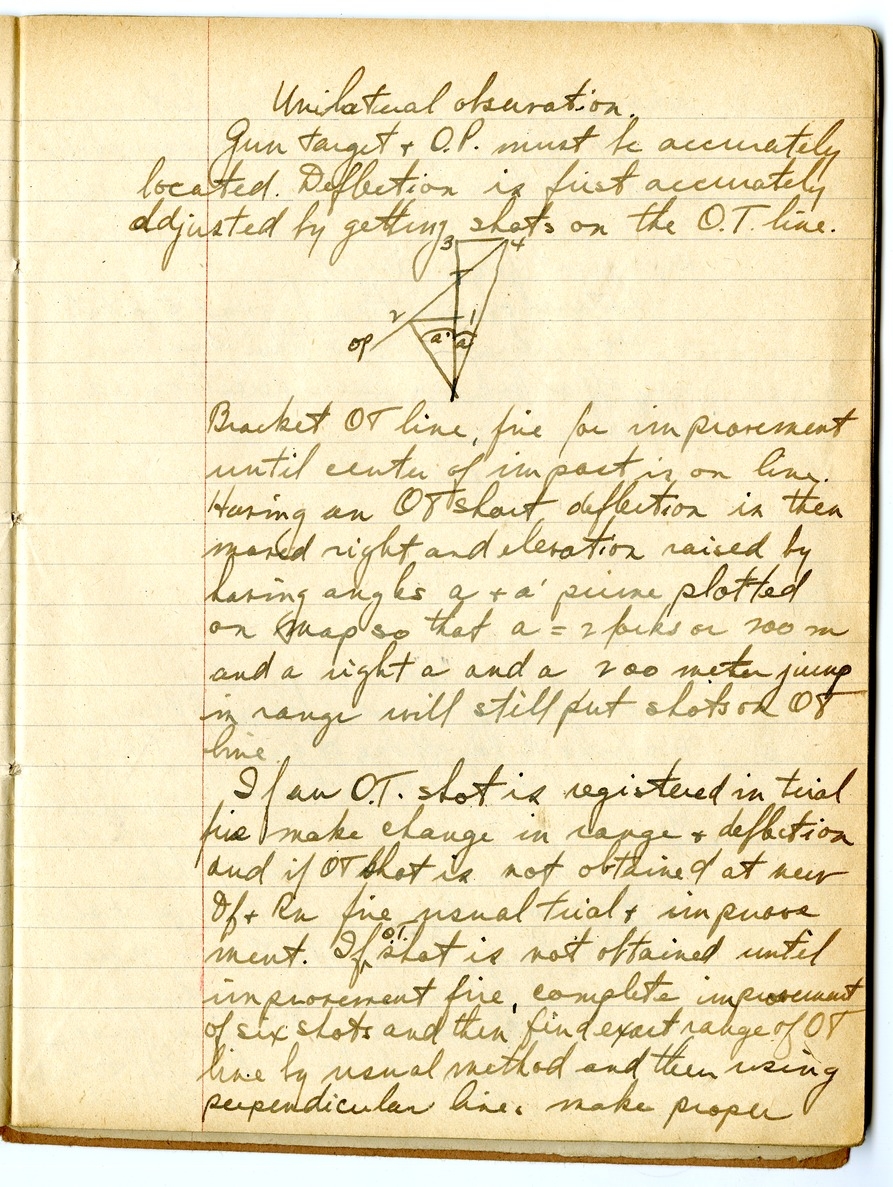 Unilateral observation.
Gun target + O.P. must be accurately
located. Deflection is first accurately
adjusted by getting shots on the O.T. line.
3 4
T
2 1
OP a' a
Bracket OT line, fire for improvement
until center of impact is on line.
Having an OT short deflection is then
moved right and elevation raised by
having angles a + a' plotted
on map so that a = 2 forks or 200 m
and a right a and a 200 meter jump
in range will still put shots on OT
line.
If an O.T. shot is registered in trial
fire make change in range + deflection
and if OT shot is not obtained at new
Df + Rn fire usual trial + improve
ment. If OT shot is not obtained until
improvement fire, complete improvement
of six shots and then find exact range of OT
line by usual method and then using
perpendicular line. make proper